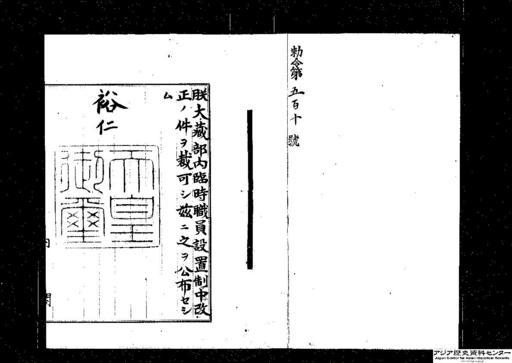 勅令第五百十號
朕大藏部内臨時職員設置制中改
正ノ件ヲ裁可シ茲ニ之ヲ公布セシ
ム
裕仁
天皇
御璽
内閣
アジア歴史資料センター
Japan Center for Asian Historical Records